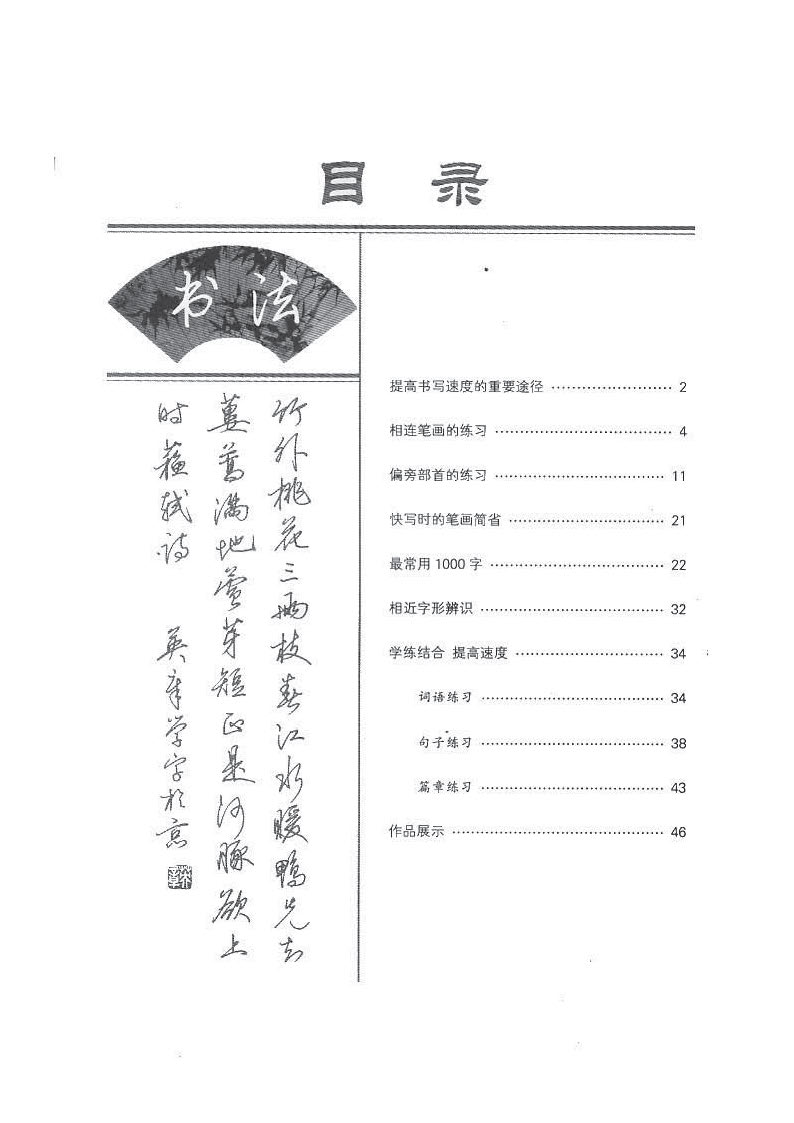 目 录
书 法
竹外桃花三两枝春江水暖鸭先知
蔞蒿满地蘆芽短正是河豚欲上
时 蘇轼诗 英章学字於京
提高书写速度的重要途径 …………………… 2
相连笔画的练习 …………………… 4
偏旁部首的练习 …………………… 11
快写时的笔画简省 …………………… 21
最常用 1000 字 …………………… 22
相近字形辨识 …………………… 32
学练结合 提高速度 …………………… 34
词语练习 …………………… 34
句子练习 …………………… 38
篇章练习 …………………… 43
作品展示 …………………… 46